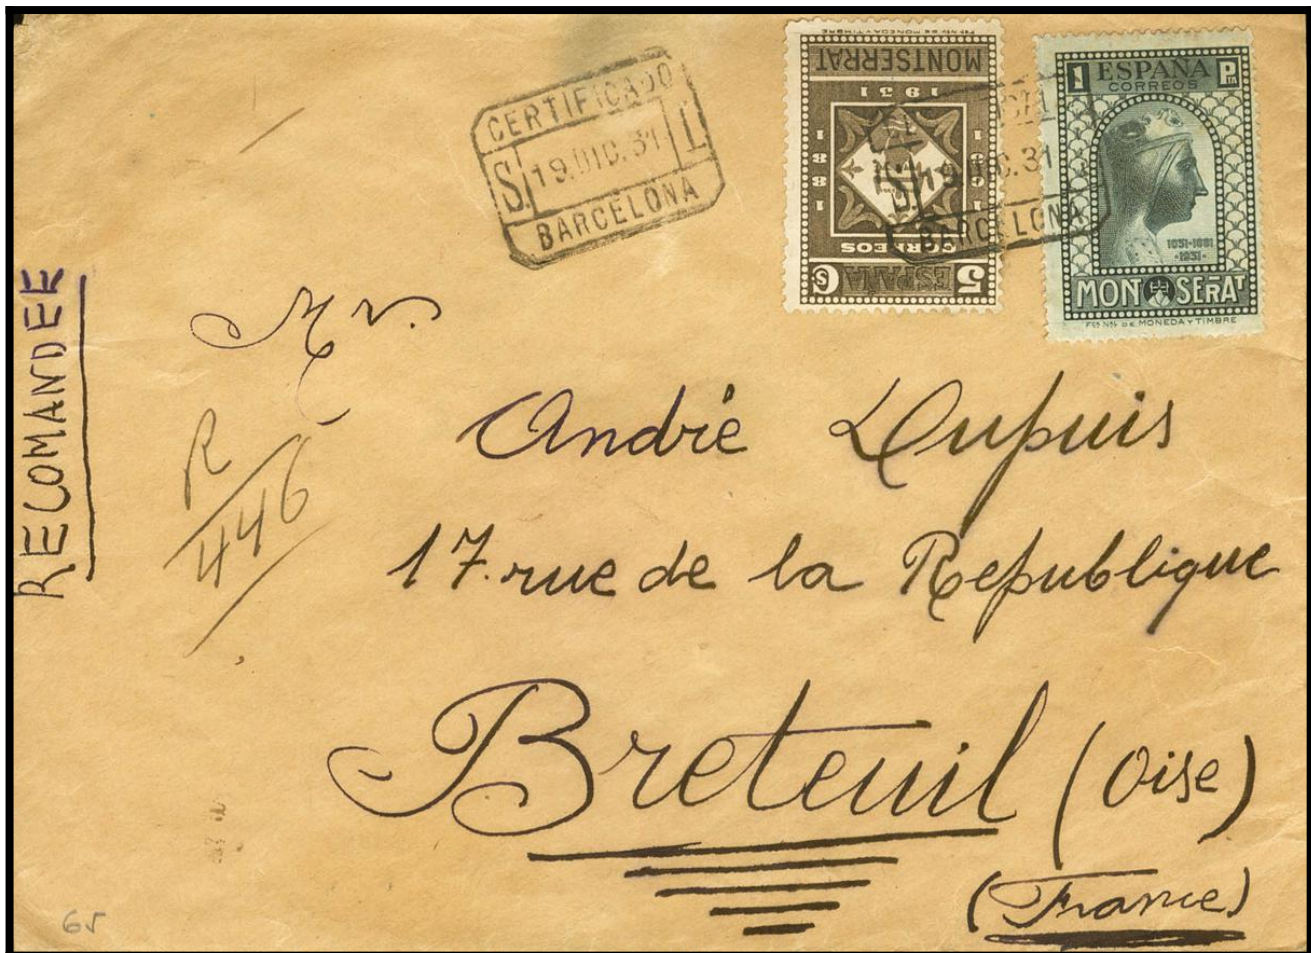 CERTIFICADO
S. 19.DIC.31 1.
BARCELONA
MONTSERRAT
1931
1881
1931
CORREOS
ESPAÑA
5 Cs
19.DIC.31
BARCELONA
1 ESPAÑA PTA
CORREOS
1031-1881
·1931·
MONTSEÑAT
FCA NAL DE MONEDA Y TIMBRE
RECOMANDEE
Mr.
R
446
André Dupuis
17. rue de la Republique
Breteuil (Oise)
(France)
65